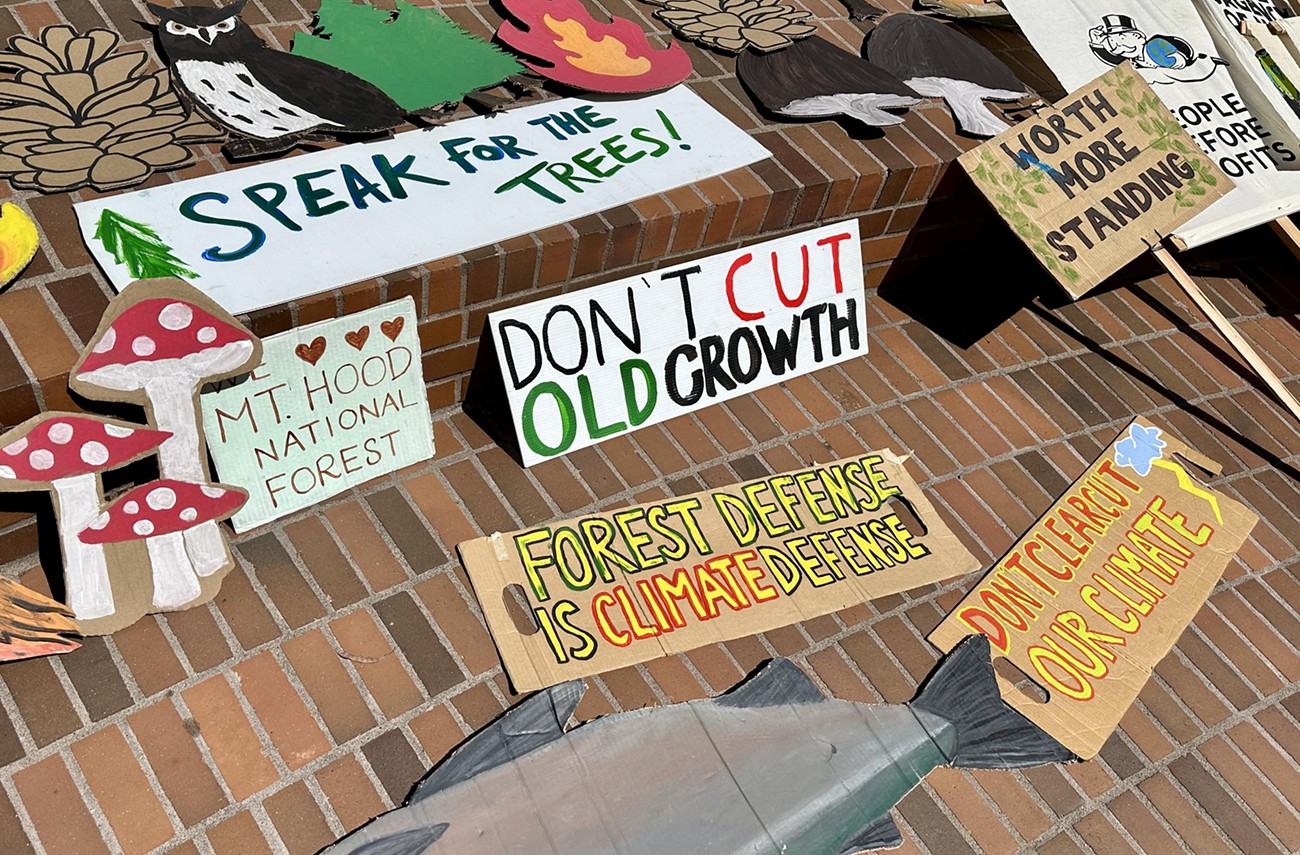 SPEAK FOR THE
TREES!
WORTH
MORE
STANDING
DON'T CUT
OLD GROWTH
MT. HOOD
NATIONAL
FOREST
FOREST DEFENSE
IS CLIMATE DEFENSE
DON'T CLEARCUT
OUR CLIMATE